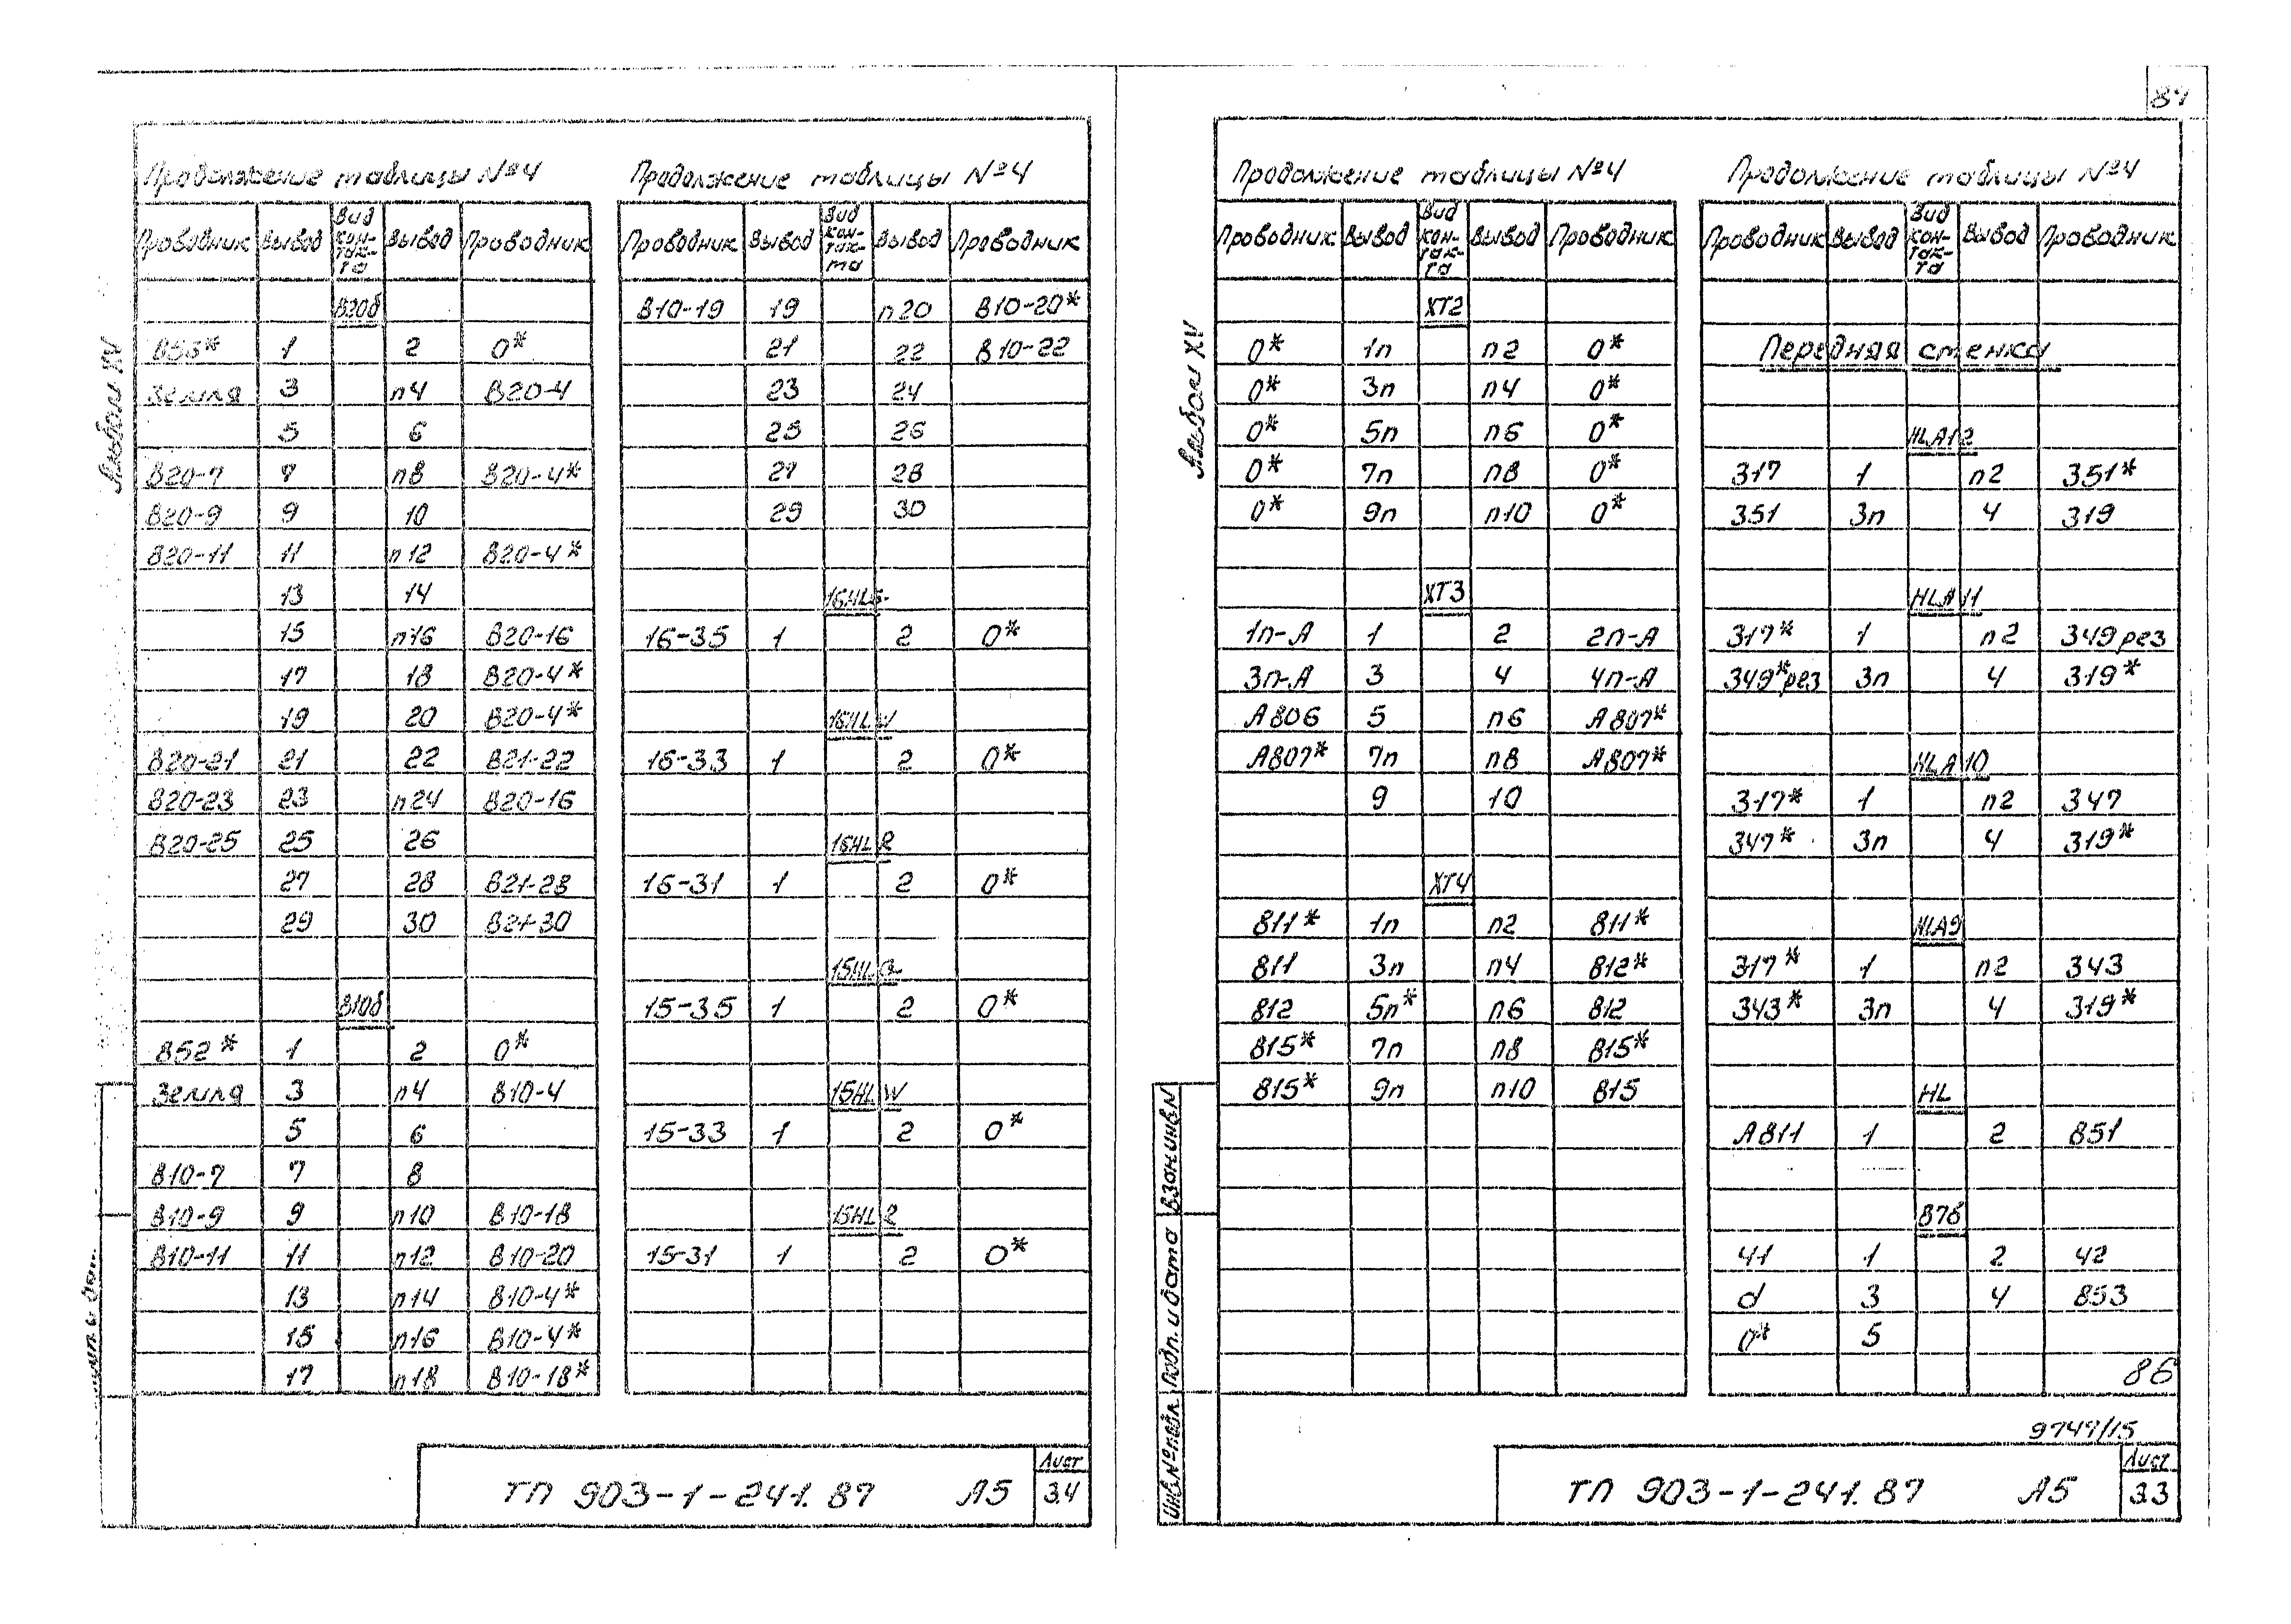 87
Альбом XV
Продолжение таблицы №4
Проводник Вывод Вид кон-так-та Вывод Проводник
В20б
853* 1 2 0*
Земля 3 п4 В20-4
5 6
В20-7 7 п8 В20-4*
В20-9 9 10
В20-11 11 п12 В20-4*
13 14
15 п16 В20-16
17 18 В20-4*
19 20 В20-4*
В20-21 21 22 В21-22
В20-23 23 п24 В20-16
В20-25 25 26
27 28 В21-28
29 30 В21-30
В10б
852* 1 2 0*
Земля 3 п4 В10-4
5 6
В10-7 7 8
В10-9 9 п10 В10-18
В10-11 11 п12 В10-20
13 п14 В10-4*
15 п16 В10-4*
17 п18 В10-18*
Продолжение таблицы №4
Проводник Вывод Вид кон-так-та Вывод Проводник
В10-19 19 п20 В10-20*
21 22 В10-22
23 24
25 26
27 28
29 30
16HLG
16-35 1 2 0*
16HLW
16-33 1 2 0*
16HLR
16-31 1 2 0*
15HLG
15-35 1 2 0*
15HLW
15-33 1 2 0*
15HLR
15-31 1 2 0*
ТП 903-1-241.87 А5
Лист
34
Альбом XV
Продолжение таблицы №4
Проводник Вывод Вид кон-так-та Вывод Проводник
XT2
0* 1п п2 0*
0* 3п п4 0*
0* 5п п6 0*
0* 7п п8 0*
0* 9п п10 0*
XT3
1п-А 1 2 2п-А
3п-А 3 4 4п-А
А806 5 п6 А807*
А807* 7п п8 А807*
9 10
XT4
811* 1п п2 811*
811 3п п4 812*
812 5п* п6 812
815* 7п п8 815*
815* 9п п10 815
Продолжение таблицы №4
Проводник Вывод Вид кон-так-та Вывод Проводник
Передняя стенка
HLA12
317 1 п2 351*
351 3п 4 319
HLA11
317* 1 п2 349рез
349*рез 3п 4 319*
HLA10
317* 1 п2 347
347* 3п 4 319*
HLA9
317* 1 п2 343
343* 3п 4 319*
HL
А811 1 2 851
В7б
41 1 2 42
d 3 4 853
0* 5
86
9747/15
Инв.№подл. Подп. и дата Взам инв.N
ТП 903-1-241.87 А5
Лист
33